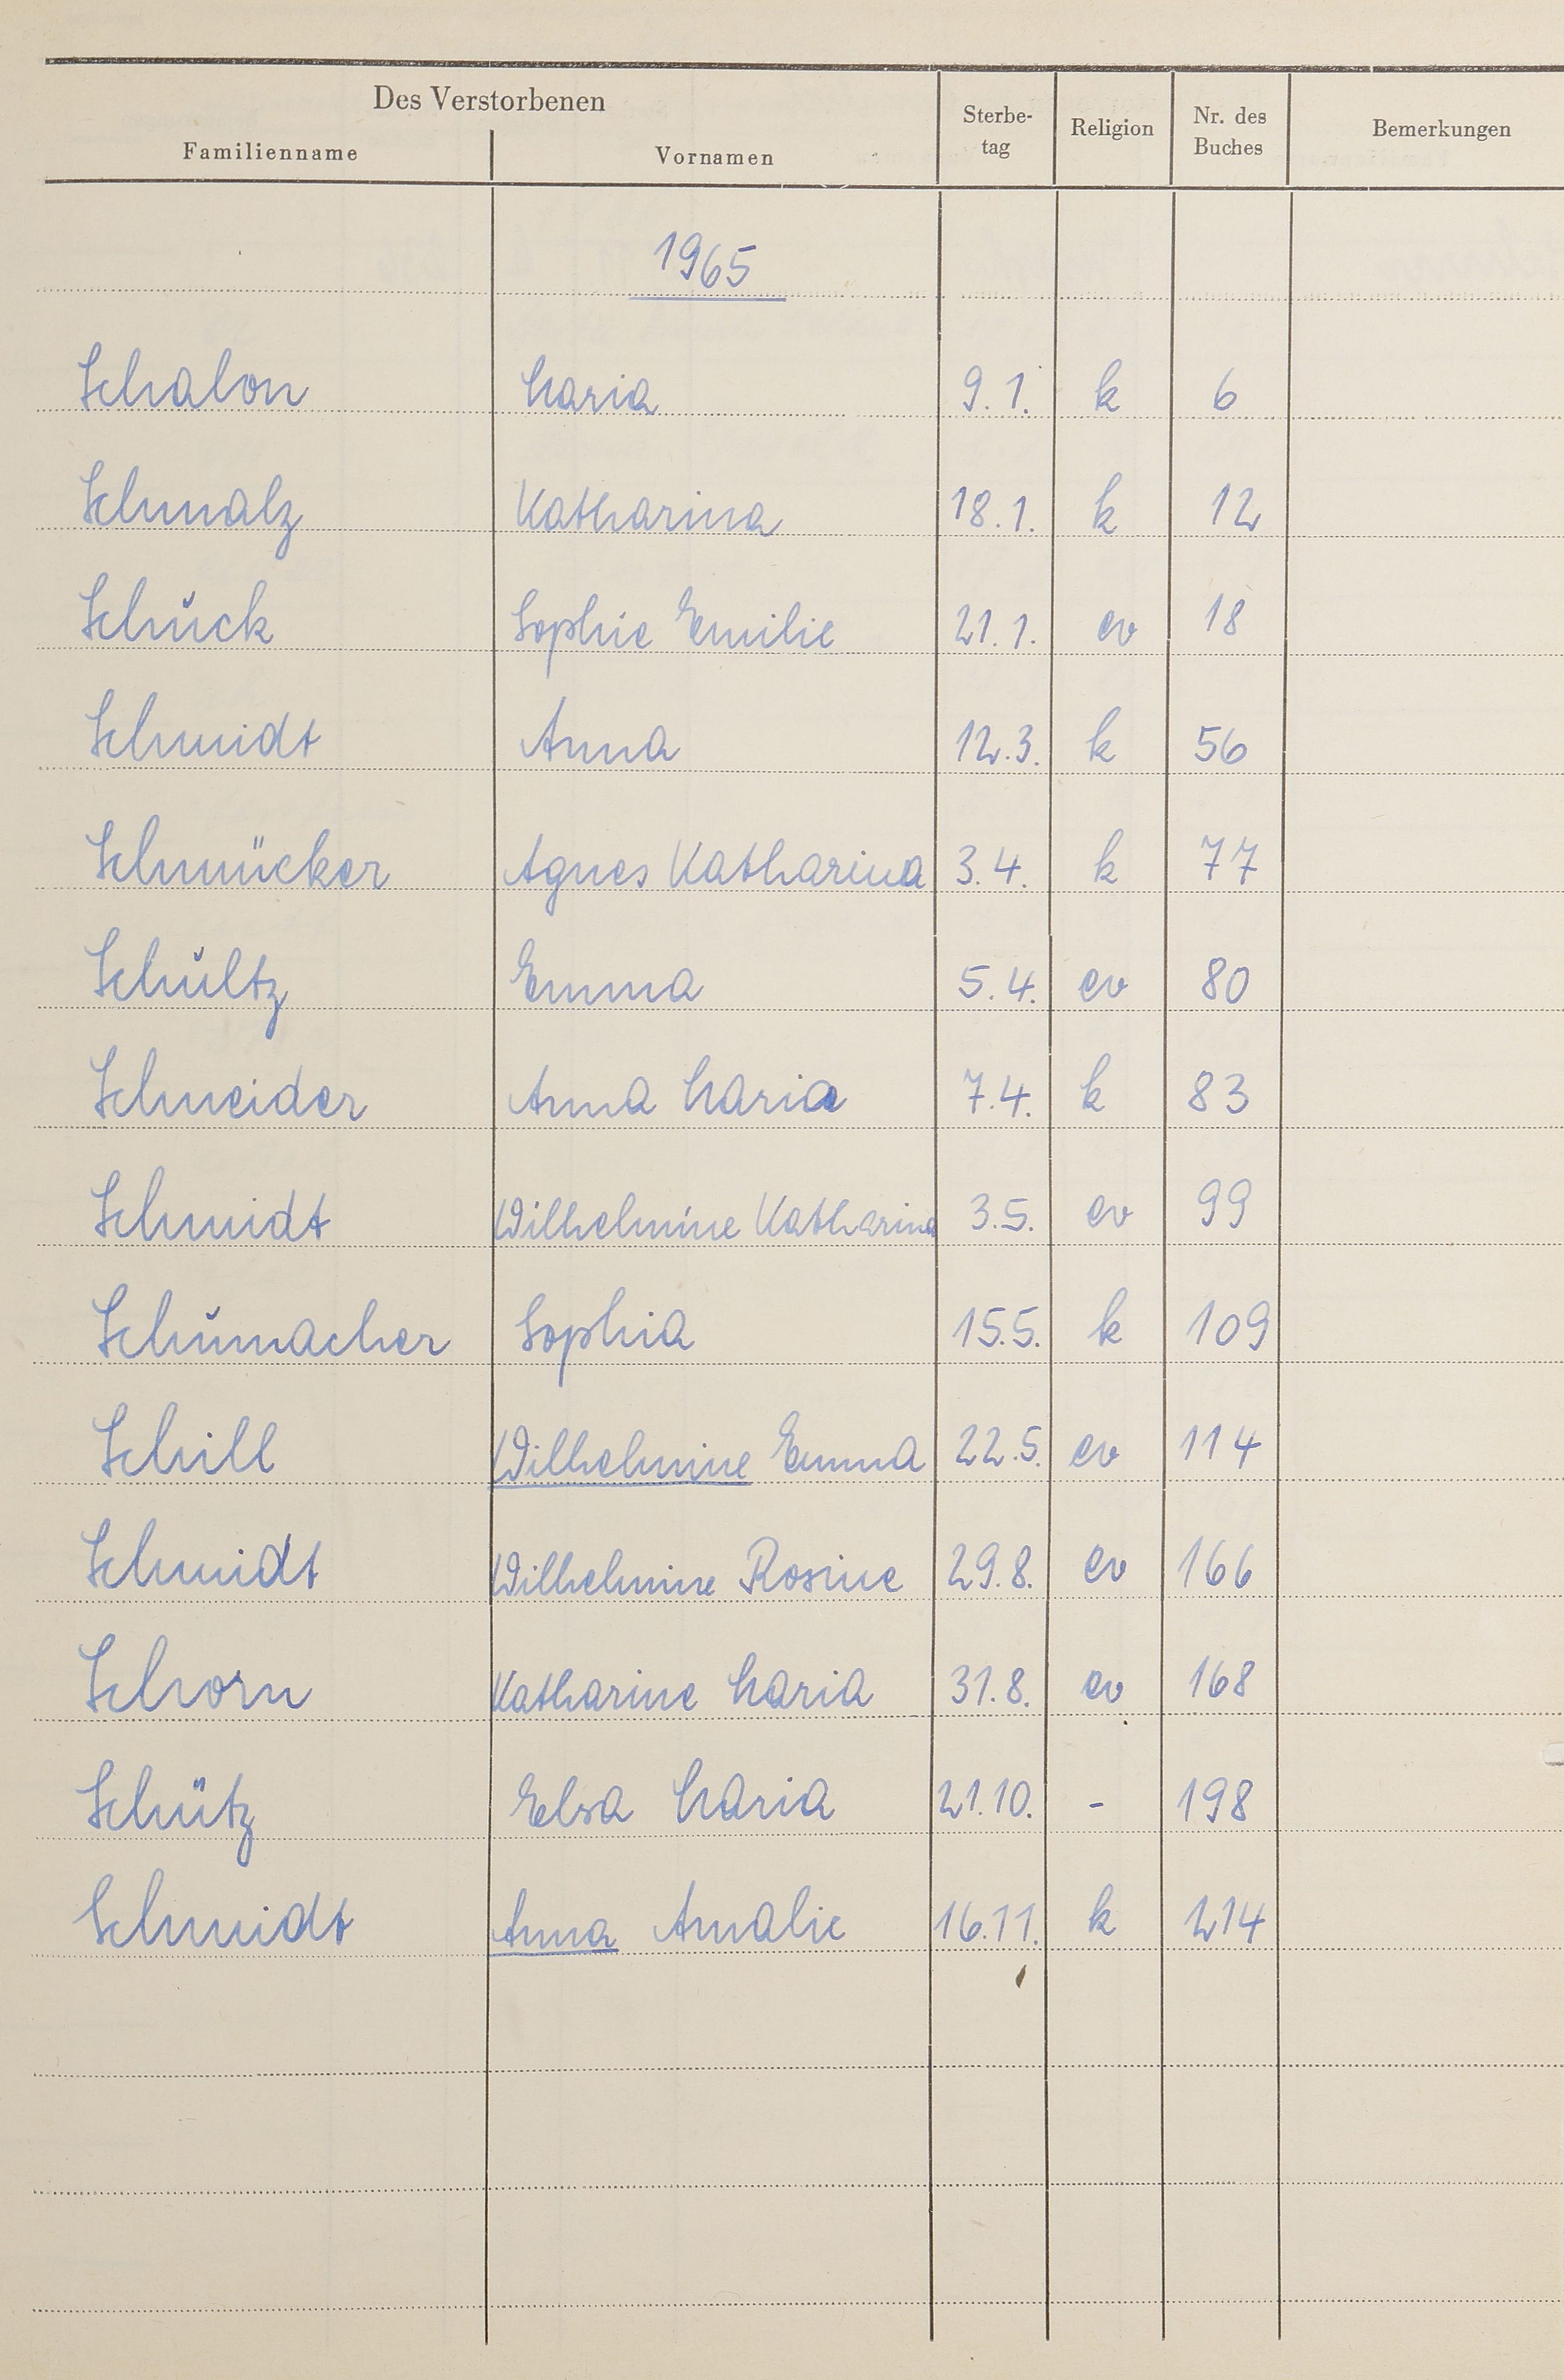 Des Verstorbenen
Familienname Vornamen Sterbe-tag Religion Nr. des Buches Bemerkungen
1965
Schalon Maria 9.1. k 6
Schmalz Katharina 18.1. k 12
Schuck Sophie Emilie 21.1. ev 18
Schmidt Anna 12.3. k 56
Schmücker Agnes Katharina 3.4. k 77
Schultz Emma 5.4. ev 80
Schneider Anna Maria 7.4. k 83
Schmidt Wilhelmine Katharina 3.5. ev 99
Schumacher Sophia 15.5. k 109
Schill Wilhelmine Emma 22.5. ev 114
Schmidt Wilhelmine Rosine 29.8. ev 166
Schorn Katharine Maria 31.8. ev 168
Schütz Elsa Maria 21.10. - 198
Schmidt Anna Amalie 16.11. k 214